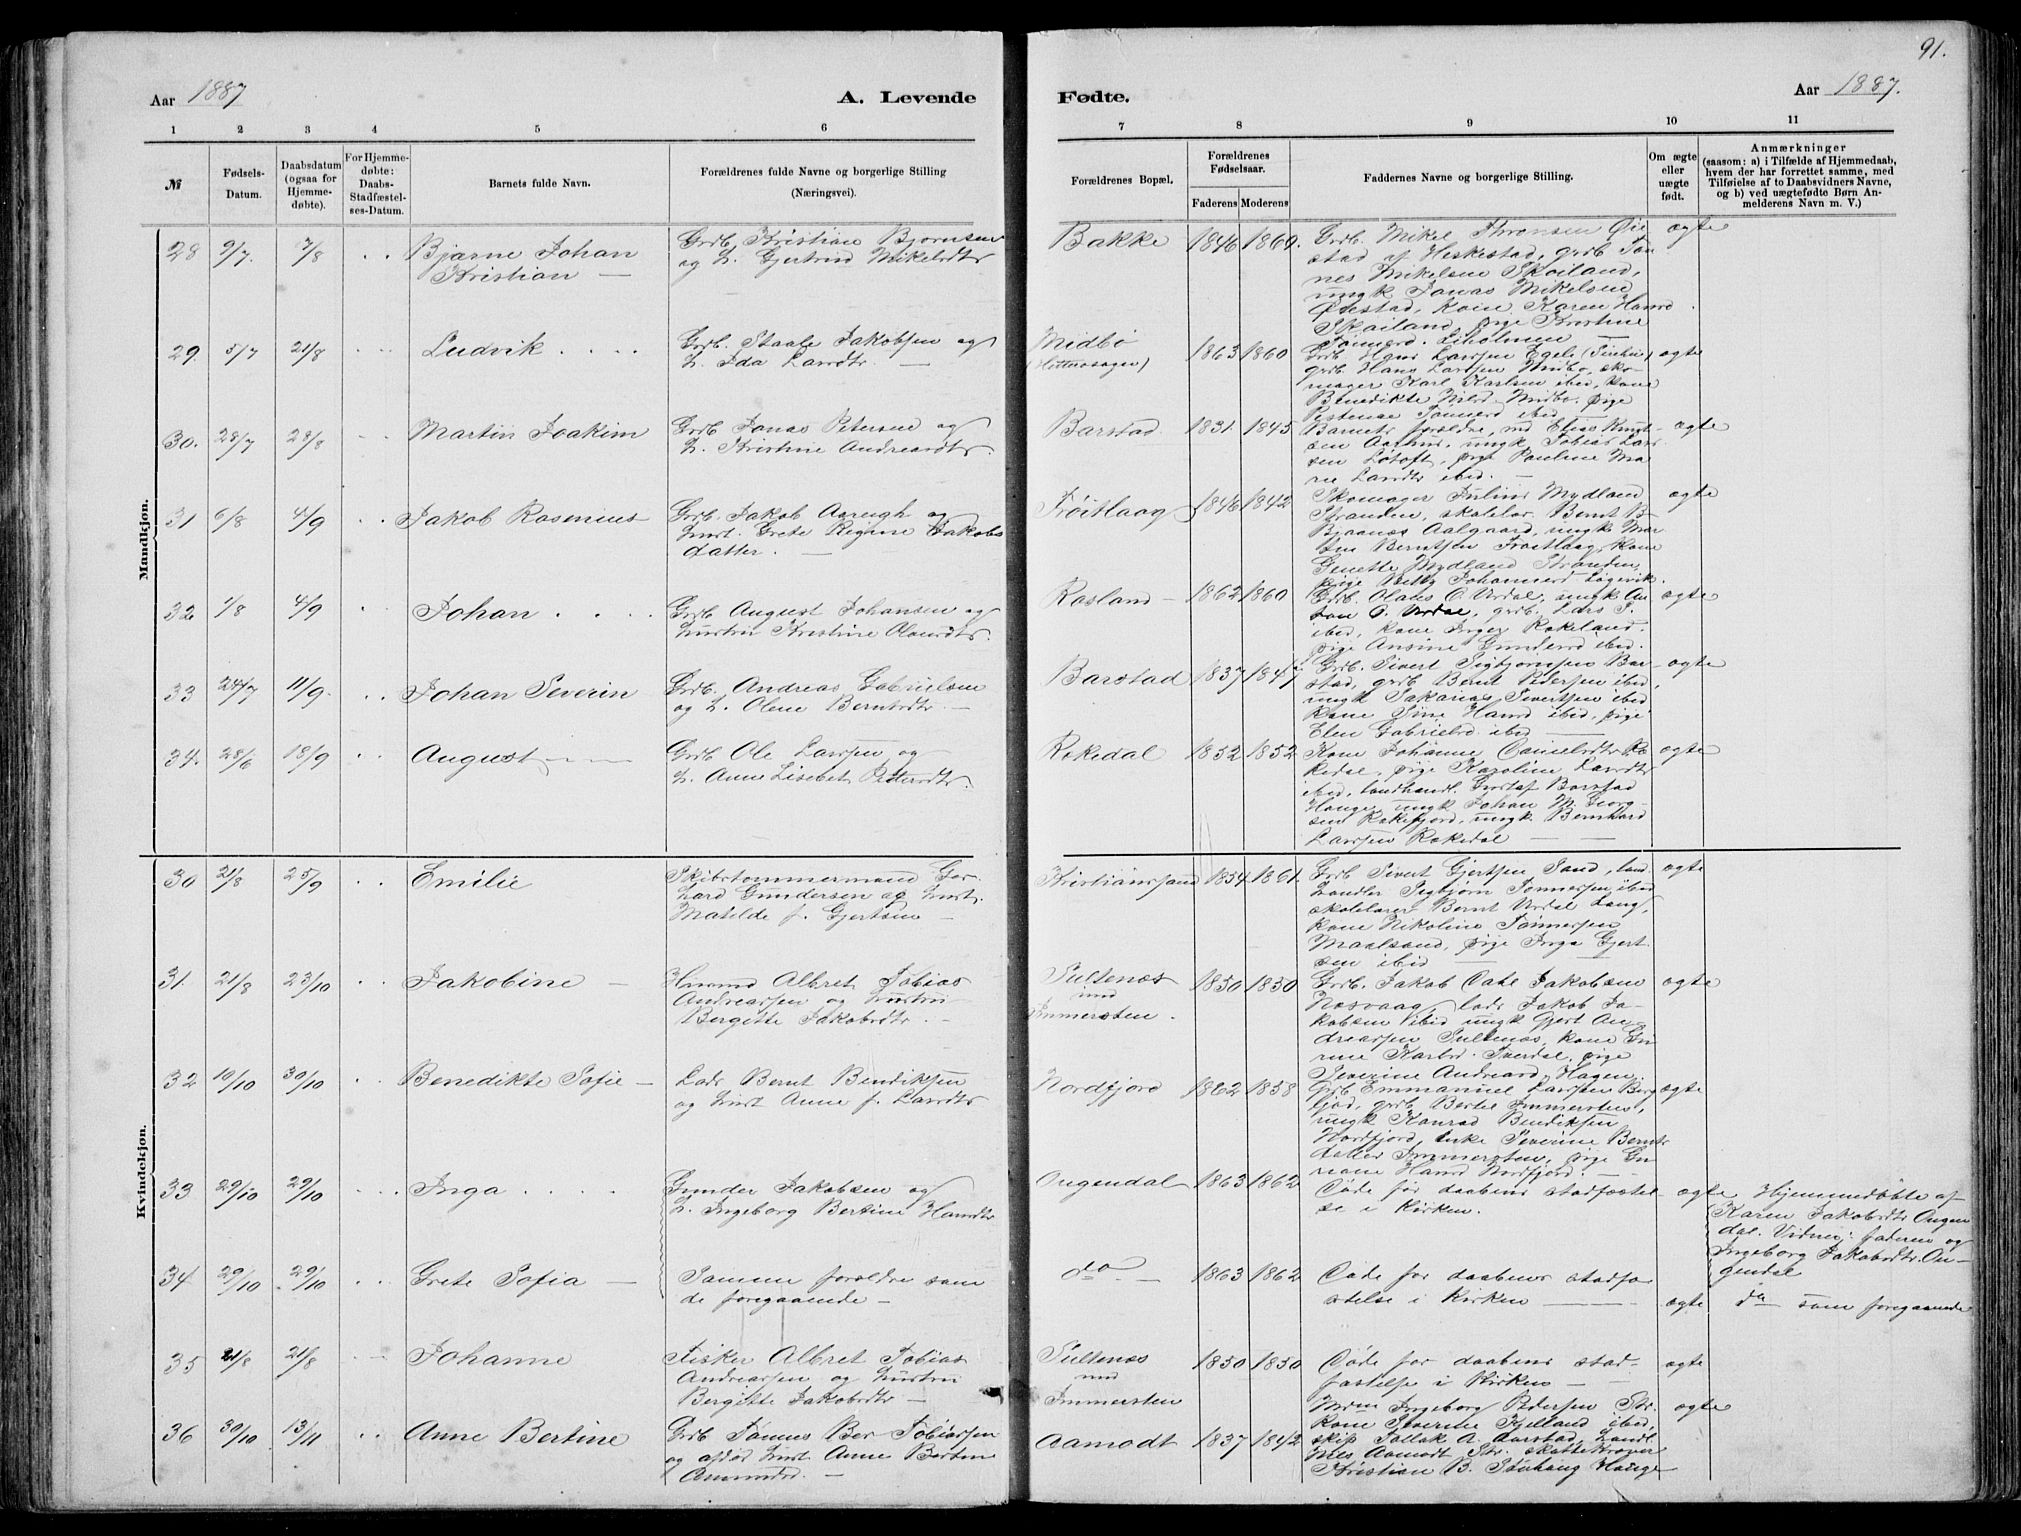 91.
Aar 1887
A. Levende
Fødte.
Aar 1887.
1 2 3 4 5 6
7 8 9 10 11
№
Fødsels-
Datum.
Daabsdatum
(ogsaa for
Hjemme-
døbte).
For Hjemme-
døbte:
Daabs-
Stadfæstel-
ses-Datum.
Barnets fulde Navn.
Forældrenes fulde Navne og borgerlige Stilling
(Næringsvei).
Forældrenes Bopæl.
Forældrenes
Fødselsaar.
Faderens Moderens
Faddernes Navne og borgerlige Stilling.
Om ægte
eller
uægte
født.
Anmærkninger
(saasom: a) i Tilfælde af Hjemmedaab,
hvem der har forrettet samme, med
Tilføielse af to Daabsvidners Navne,
og b) ved uægtefødte Børn An-
melderens Navn m. V.)
Mandkjøn.
28 9/7. 7/8 Bjarne Johan
Kristian —
Grdb. Kristian Bjørnsen
og h. Gjertrud Mikelsdtr
Bakke 1846 1860.
Grdb. Mikel Thronsen Øie
stad af Heskestad, grdb Tøn
nes Mikelsen Skoiland,
ungk Jonas Mikelsen
Øiestad, kone Karen Hansd
Skoiland, pige Kristine
Tønnesd. Liholmen —
ægte
29. 5/7 21/8 Ludvik
Grdb. Staale Jakobsen og
h. Ida Larsdtr. —
Midbø
1863 1860
Grdb. Hans Larssen Egele
grdb. Hans Larssen Midbø, sko
mager Karl Karlsen ibid, kone
Benedikte Nilsd. Midbø. pige
Tønnesd ibid —
ægte
30. 28/7 28/8 Martin Joakim
Grdb Jonas Petersen og
h. Kristine Andreasdtr.
Barstad 1831. 1845
Barnets forældre, Elias Knut
sen Aarhus, ungk Tobias Lar
sen Løtoft, pige Pauline Ma
rie Larsdtr ibid. —
ægte
31 6/8 4/9 Jakob Rosenius
Grdb. Jakob Aarengh og
hust. Grete Regine Jakobs
datter. —
Frøitlaag 1846 1842
Skomager Julius Mydland
Stranden, skolelær. Bernt B
Bjaanes Aalgaard, ungk Mar
tin Berntsen Frøitlaag, kone
Genette Mydland Stranden,
pige Netty Johannesd Løgevik.
ægte
32 1/8 4/9 Johan
Grdb August Johansen og
hustru Kristine Olausdtr.
Rosland 1862 1860
Grdb. Olaus O. Urdal, ungk An
ton O. Urdal, grdb. Lars S.
ibid, kone Inger Rekeland.
pige Ansine Gundersd ibid.
ægte
33 24/7 11/9. Johan Severin
Grdb. Andreas Gabrielsen
og h. Olene Berntsdtr. —
Barstad 1837 1847
Grdb. Sivert Sigbjørnsen Bar
stad, grdb Bernt Pedersen ibid,
ungk Sakarias Sivertsen ibid
kone Sine Hansd ibid, pige
Elen Gabrielsd ibid —
ægte
34. 28/6 18/9 August
Grdb Ole Larssen og
h. Anne Lisebet Pettersdtr.
Rekedal 1852 1852
Kone Johanne Danielsdtr Re
kedal, pige Karoline Larsdtr
ibid, landhandl. Gustaf Barstad
Hauge, ungk Johan M. Georg
sen Rekefjord, ungk Bernhard
Larssen Rekedal —
ægte
Kvindekjøn.
30 21/8 25/9 Emilie
Skibstømmermand Ger
hard Gundersen og hust.
Matilde f. Gjertsen —
Kristianssand 1854 1861.
Grdb Sivert Gjertsen Sand, land
handler Sigbjørn Tønnessen ibid
skolelærer Bernt Urdal Laug,
kone Nikoline Tønnessen
Maalsand, pige Inga Gjert
sen ibid —
ægte
31. 21/8 23/10 Jakobine —
Husmd Albret Tobias
Andreassen og hustru
Bergitte Jakobsdtr. —
Sultenæs
und
Immersten.
1850 1850
Grdb. Jakob Jakobsen
Nesvaag, lods Jakob Ja-
kobsen ibid ungk Gjert An
dreassen Sultenæs, kone Gu
rine Karlsd. Sverdal, pige
Severine Andreasd. Hagen.
ægte
32 10/10 30/10 Benedikte Sofie —
Lods Bernt Bendiksen
og hust Anne f. Larsdtr
Nordfjord 1862 1858
Grdb Emmanuel Larssen Berg
grdb. Bertel Immersten,
ungk Konrad Bendiksen
Nordfjord, enke Severine Bernts
datter Immersten, pige Gu
riane Hansd Nordfjord. —
ægte
33 29/10 29/10 Inga
Gunder Jakobsen og
h. Ingeborg Bertine Hansdtr
Ougendal 1863 1862
Døde før daabens stadfæstel
se i kirken.
ægte
Hjemmedøbte af
Karen Jakobsdtr Ougen
dal. Vidner: faderen og
Ingeborg Jakobsdtr. Ou-
gendal
34 29/10 29/10 Grete Sofia —
Samme forældre som
de foregaaende —
do — 1863 1862
Døde før daabens stadfæ
stelse i kirken —
ægte
do som foregaaende
35 21/8 21/8 Johanne
Fisker Albret Tobias
Andreassen og hustru
Bergitte Jakobsdtr —
Sultenæs
und
Immersten
1850 1850
Døde før daabens stad-
fæstelse i kirken —
ægte
36 30/10 13/11 Anne Bertine
Grdb Tønnes Ber Tobiassen
og afdød hust Anne Bertine
Amundsd. —
Aamodt 1837 1842
Mdm Ingeborg Pedersen Str.
kone Severine Kjelland ibid,
skip Tollak A. Aarstad, Landh
Nils Aamodt Str. skattekræver
Kristian B. Hauge
ægte